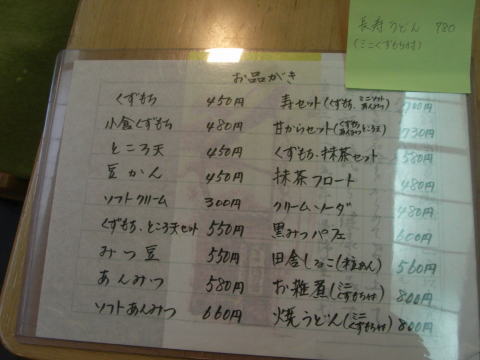 長寿うどん 980
(ミニくずもち付)
お品がき
くずもち 450円
小倉くずもち 480円
ところ天 450円
豆かん 450円
ソフトクリーム 300円
くずもち、ところ天セット 550円
みつ豆 550円
あんみつ 580円
ソフトあんみつ 660円
寿セット(くずもち、ミニソフトあんみつ) 700円
甘からセット(くずもち あんみつ ところ天) 730円
くずもち、抹茶セット 580円
抹茶フロート 480円
クリームソーダ 480円
黒みつパフェ 600円
田舎しるこ(粒あん) 560円
お雑煮(ミニくずもち付) 800円
焼うどん(ミニくずもち付) 800円